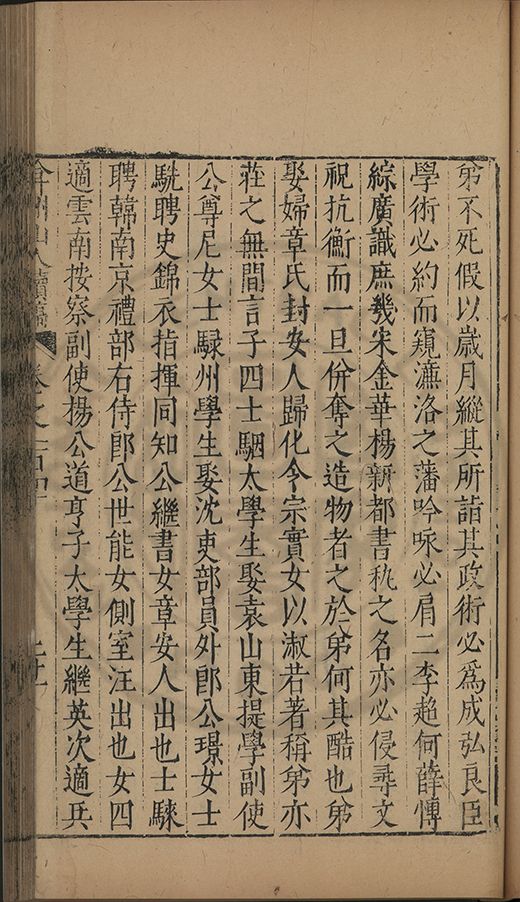 弟不死假以歲月縱其所詣其政術必爲成弘良臣
學術必約而窺濂洛之藩吟咏必肩二李趋何薛愽
綜廣識庶幾宋金華楊新都書秇之名亦必侵尋文
祝抗衡而一旦併奪之造物者之於弟何其酷也弟
娶婦章氏封安人歸化令宗實女以淑若著稱弟亦
莊之無間言子四士駰太學生娶袁山東提學副使
公尊尼女士騄州學生娶沈吏部員外郎公璟女士
駪聘史錦衣指揮同知公繼書女章安人出也士騋
聘韓南京禮部右侍郎公世能女側室汪出也女四
適雲南按察副使揚公道亨子大學生繼英次適兵
弇州山人續稿 卷之一百四十